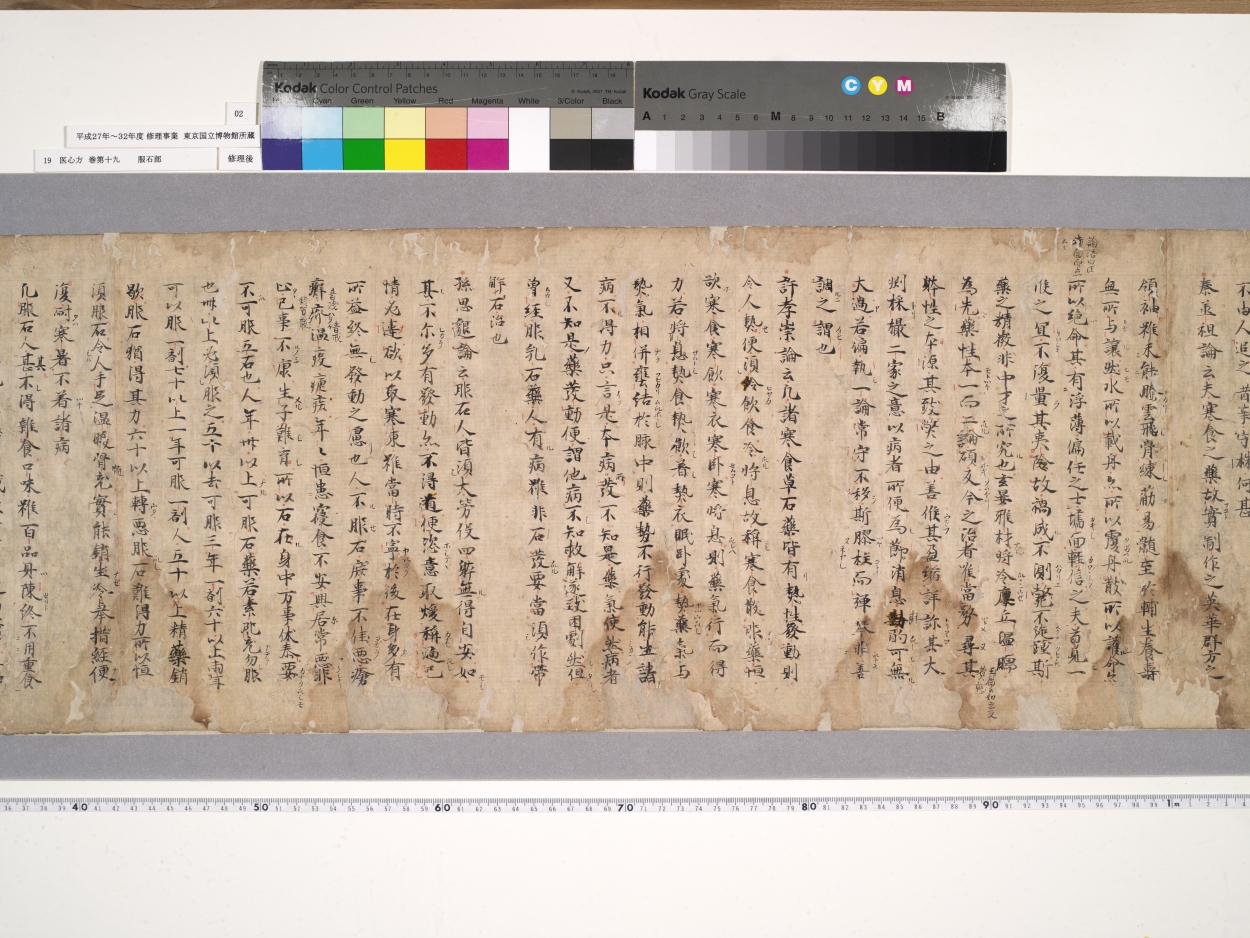 Kodak Color Control Patches
Cyan Green Yellow Red Magenta White 3/Color Black
Kodak Gray Scale
C Y M
A 1 2 3 4 5 6 M 8 9 10 11 12 13 14 15 B
02
平成27年～32年度 修理事業 東京国立博物館所蔵
19 医心方 巻第十九 服石部
修理後
秦丞祖論云夫寒食之藥故實制作之英華群方之
領袖雖未能騰雲飛骨練筋易髓至於輔生養壽
無所与讓然水所以載舟亦所以覆舟散所以護命亦
所以絶命其有浮薄偏任之士墻面輕信之夫苟見一
候之宜不復量其夷險故禍成不測斃不旋踵斯
藥之精微非中才之所究也玄晏雅材將冷廩丘温暖
為先藥性本一而二論碩反今之治者唯當務尋其
躰性之本源其致弊之由善候其盈縮詳診其大
剉採撮二家之意以病者所便為節消息斟酌可無
大過若偏執一論常守不移斯膠柱而彈琴非善
調之謂也
許孝崇論云凡諸寒食草石藥皆有熱性發動則
令人熱便須冷飲食冷將息故稱寒食散非藥恒
欲寒食寒飲寒衣寒卧寒將息則藥氣行而得
力若將息熱食熱飲著熱衣眠卧處熱藥氣与
熱氣相併壅結於脉中則藥勢不行發動能生諸
病不得力只言是本病所發不知是藥氣使然病者
又不知是藥發動便謂他病不知救解遂致困劇然但
曾經服乳石藥人有病雖非石發要當須作帶
解石治也
孫思邈論云服石人皆須大勞役四躰無得自安如
其不尓多有發動亦不得道便恣意取煖稱適已
情必違欲以取寒凍雖當時不寧於後在身多有
所益終無發動之慮也人不服石庶事不佳惡瘡
癬疥温疫瘧疾年々恒患寢食不安興居常惡罪
止己事不康生子難育所以石在身中万事休泰要
不可服五石也人年卅以上可服石藥若素肥充勿服
也卌以上必須服之五十以去可服三年一劑六十以上兩年
可以服一劑七十以上一年可服一劑人五十以上精藥銷
歇服石猶得其力六十以上轉惡服石難得力所以恒
須服石令人手足温暖骨充實能銷生冷舉措輕便
復耐寒暑不着諸病
凡服石人甚不得雜食口味雖百品具陳終不用重食